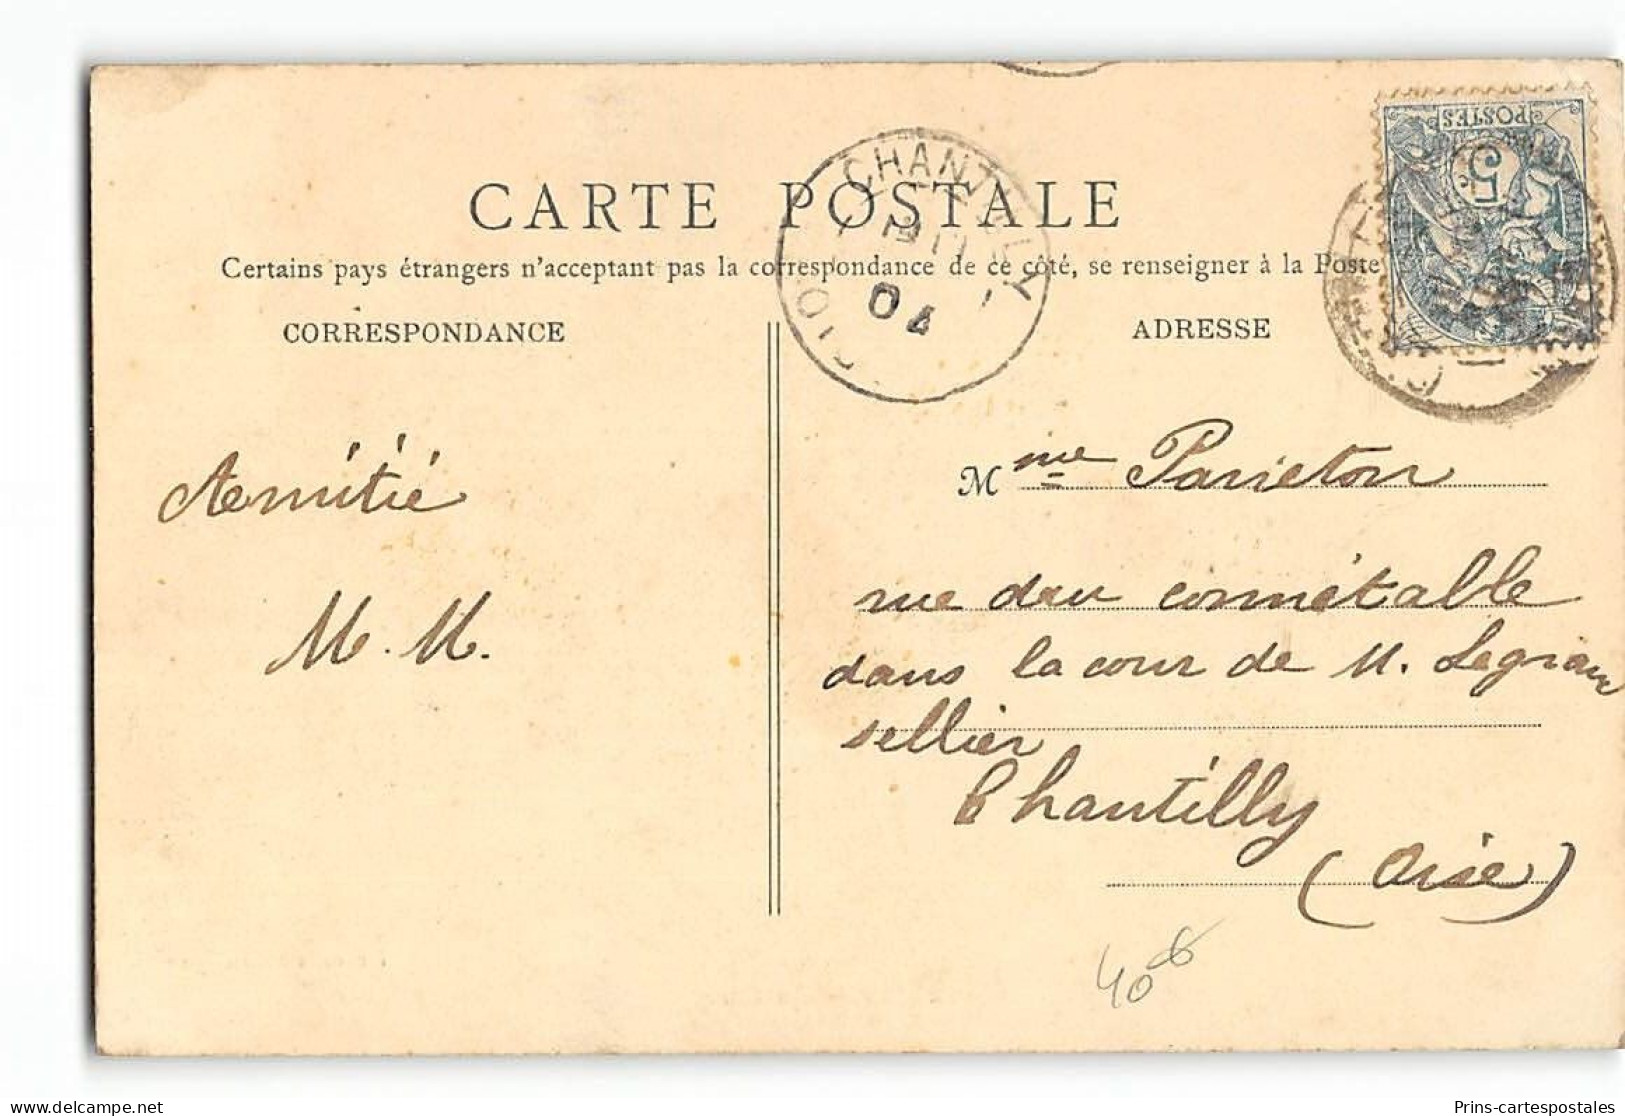 CARTE POSTALE
Certains pays étrangers n'acceptent pas la correspondance de ce côté, se renseigner à la Poste
CORRESPONDANCE
ADRESSE
POSTES
5
CHANTILLY
04
Amitié
M. M.
Mme Parieton
rue du connétable
dans la cour de M. Legran
sellier
Chantilly
(Oise)
40
delcampe.net
Prins-cartespostales